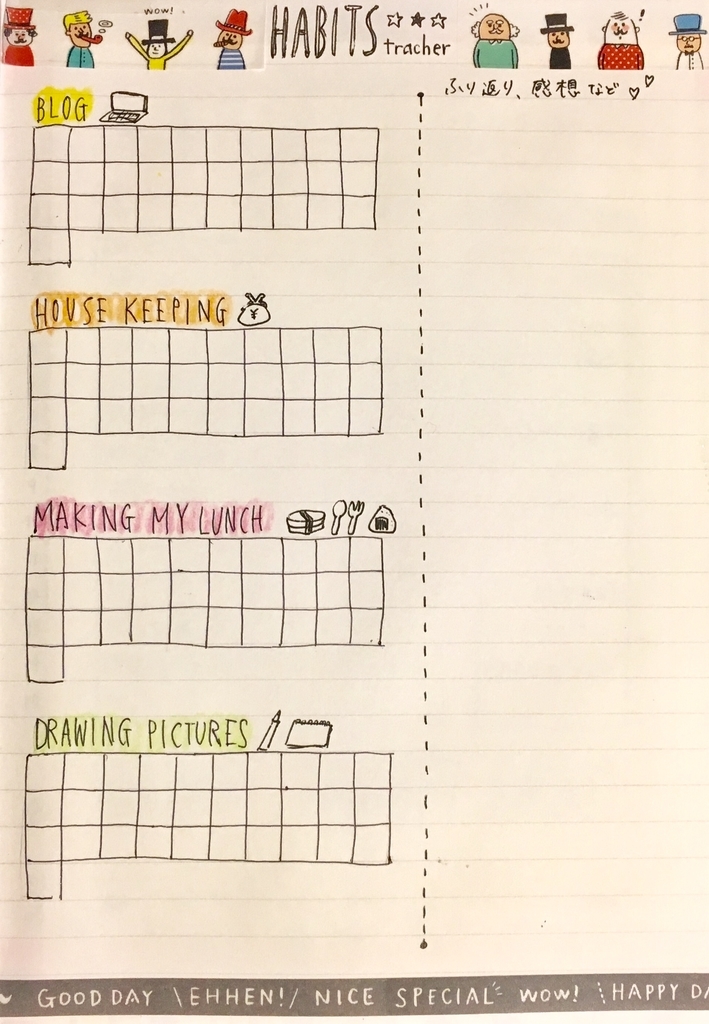 WOW!
HABITS
tracher
ふり返り、感想など
BLOG
HOUSE KEEPING
¥
MAKING MY LUNCH
DRAWING PICTURES
GOOD DAY \EHHEN!/ NICE SPECIAL WOW! HAPPY